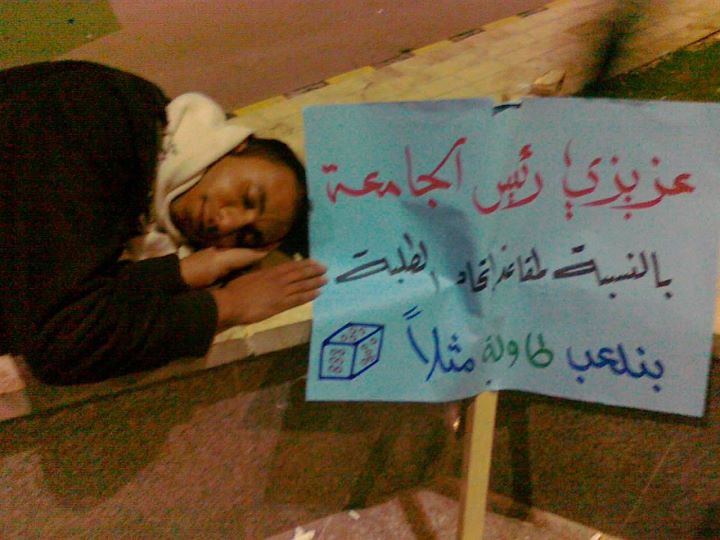 عزيزي رئيس الجامعة
بالنسبة لمقاعد اتحاد الطلبة
بنلعب طاولة مثلاً